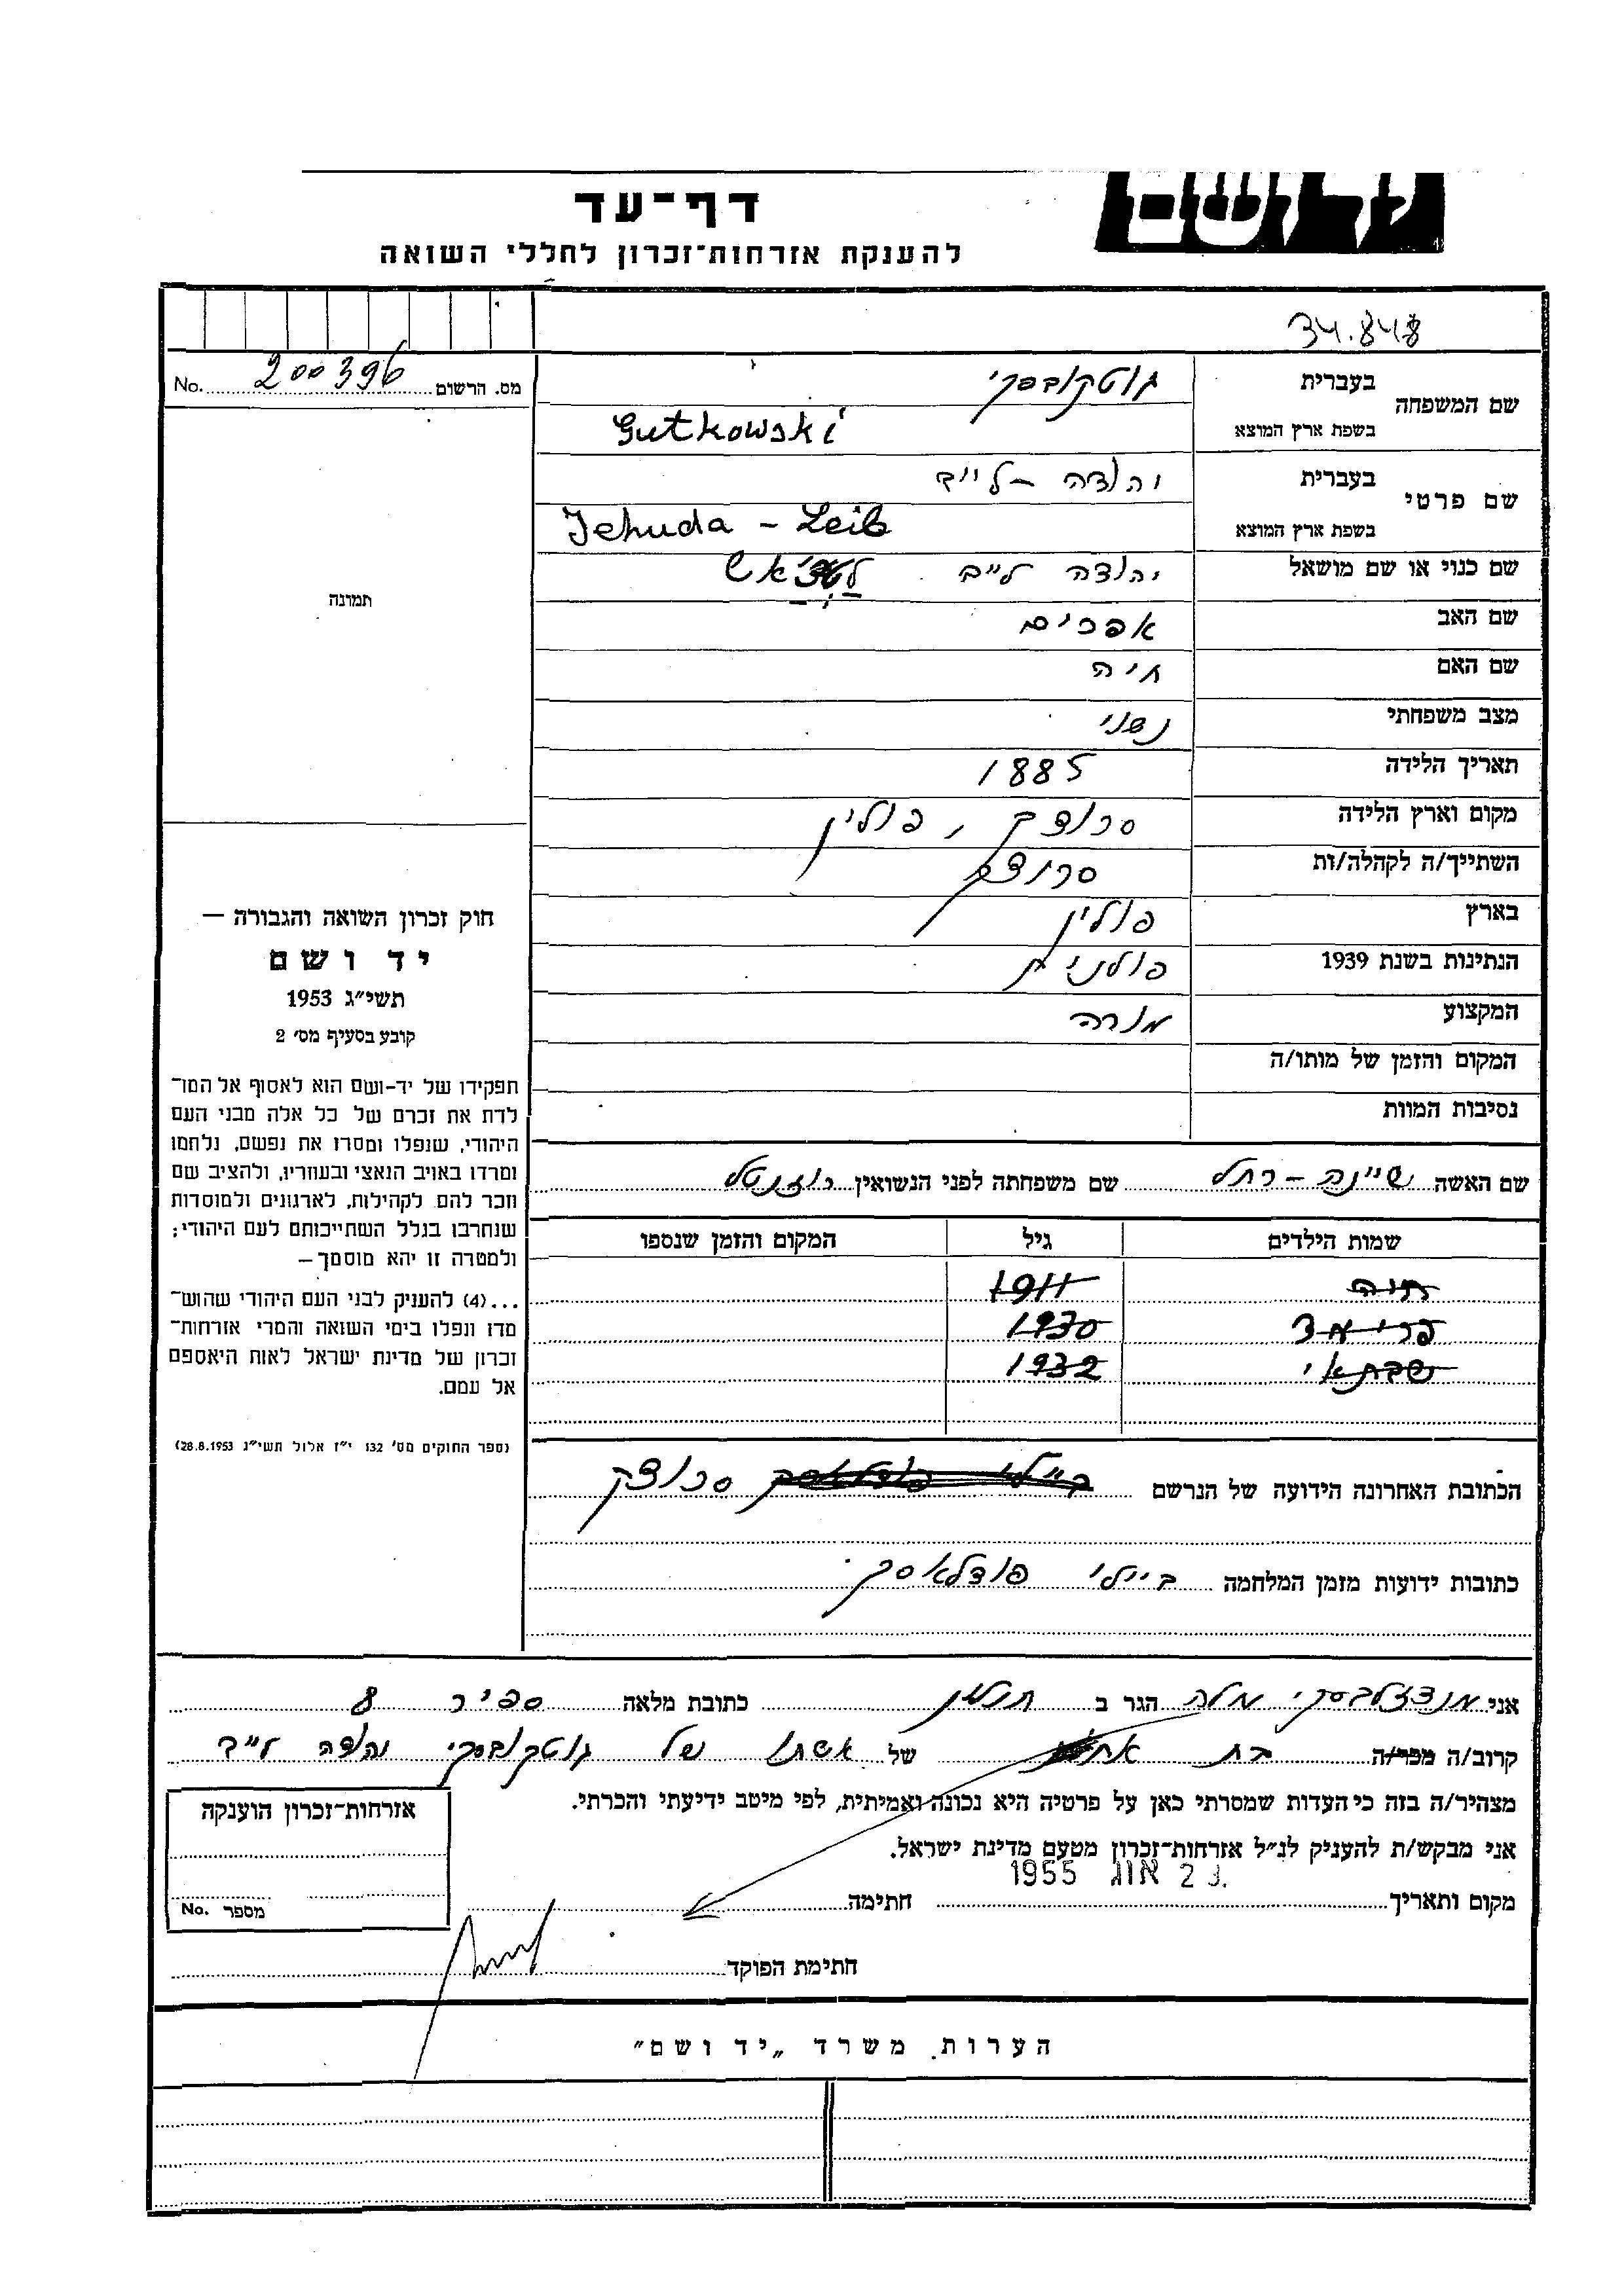 יד ושם
דף־עד
להענקת אזרחות־זכרון לחללי השואה
34.848
מס. הרשום 200396 No.
שם המשפחה
בעברית גוטקובסקי
בשפת ארץ המוצא Gutkowski
שם פרטי
בעברית יהודה - לייב
בשפת ארץ המוצא Jehuda - Leib
שם כנוי או שם מושאל יהודה לייב
תמונה
שם האב אפרים
שם האם חיה
מצב משפחתי נשוי
תאריך הלידה 1885
מקום וארץ הלידה סרוצק, פולין
השתייך/ה לקהלה/ות סרוצק
בארץ פולין
הנתינות בשנת 1939 פולנית
המקצוע מורה
המקום והזמן של מותו/ה
נסיבות המוות
חוק זכרון השואה והגבורה —
יד ושם
תשי״ג 1953
קובע בסעיף מס׳ 2
תפקידו של יד-ושם הוא לאסוף אל המו־
לדת את זכרם של כל אלה מבני העם
היהודי, שנפלו ומסרו את נפשם, נלחמו
ומרדו באויב הנאצי ובעוזריו, ולהציב שם
וזכר להם לקהילות, לארגונים ולמוסדות
שנחרבו בגלל השתייכותם לעם היהודי;
ולמטרה זו יהא מוסמך —
...(4) להענק לבני העם היהודי שהוש־
מדו ונפלו בימי השואה והמרי אזרחות־
זכרון של מדינת ישראל לאות היאספם
אל עמם.
(ספר החוקים מס׳ 132 י״ז אלול תשי״ג 28.8.1953)
שם האשה שיינה - רחל שם משפחתה לפני הנשואין רוזנטל
שמות הילדים גיל המקום והזמן שנספו
חיה 1911
1930
שבתאי 1932
הכתובת האחרונה הידועה של הנרשם סרוצק
כתובות ידועות מזמן המלחמה ביילי פודלאסק
אני מנדזלבסקי מלה הגר ב חולון כתובת מלאה ספיר 8
קרוב/ה מכר/ה בת של אשתו של גוטקובסקי יהודה לייב
מצהיר/ה בזה כי העדות שמסרתי כאן על פרטיה היא נכונה ואמיתית, לפי מיטב ידיעתי והכרתי.
אני מבקש/ת להעניק לנ״ל אזרחות־זכרון מטעם מדינת ישראל.
מקום ותאריך 2 אוג 1955 חתימה
חתימת הפוקד
אזרחות־זכרון הוענקה
מספר No.
הערות משרד „יד ושם״